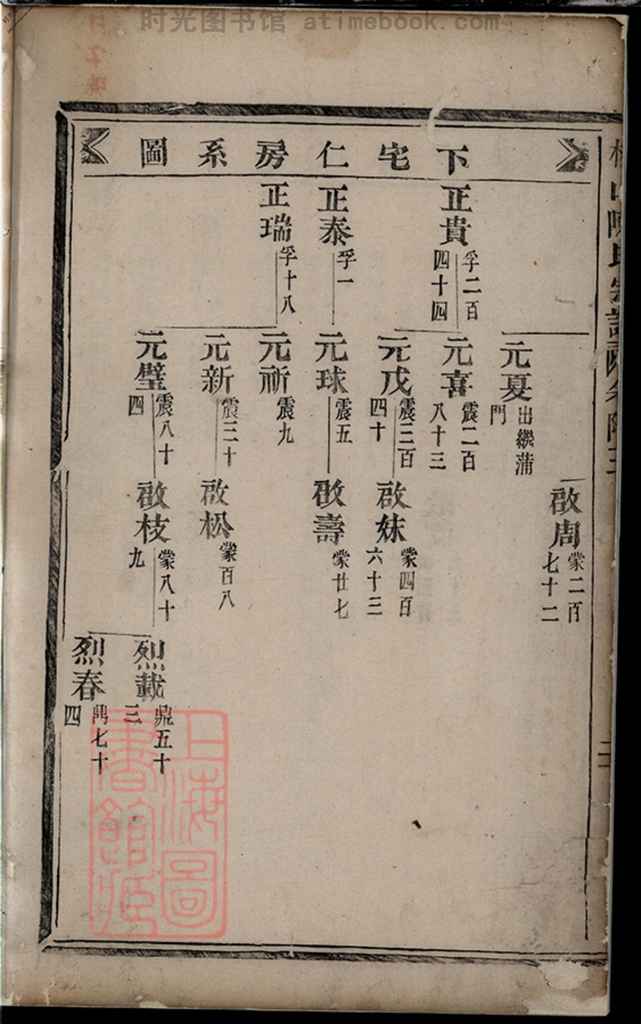 时光图书馆 atimebook.com
下宅仁房系圖
啟周 蒙二百七十二
元夏 出繼蒲門
正貴 孚二百四十四
元喜 震二百八十三
元戊 震三百四十
啟妹 蒙四百六十三
正泰 孚一
元球 震五
啟壽 蒙廿七
正瑞 孚十八
元祈 震九
元新 震三十
啟松 蒙百八
元璧 震八十四
啟枝 蒙八十九
烈載 鼎五十三
烈春 鼎七十四
上海圖書館藏